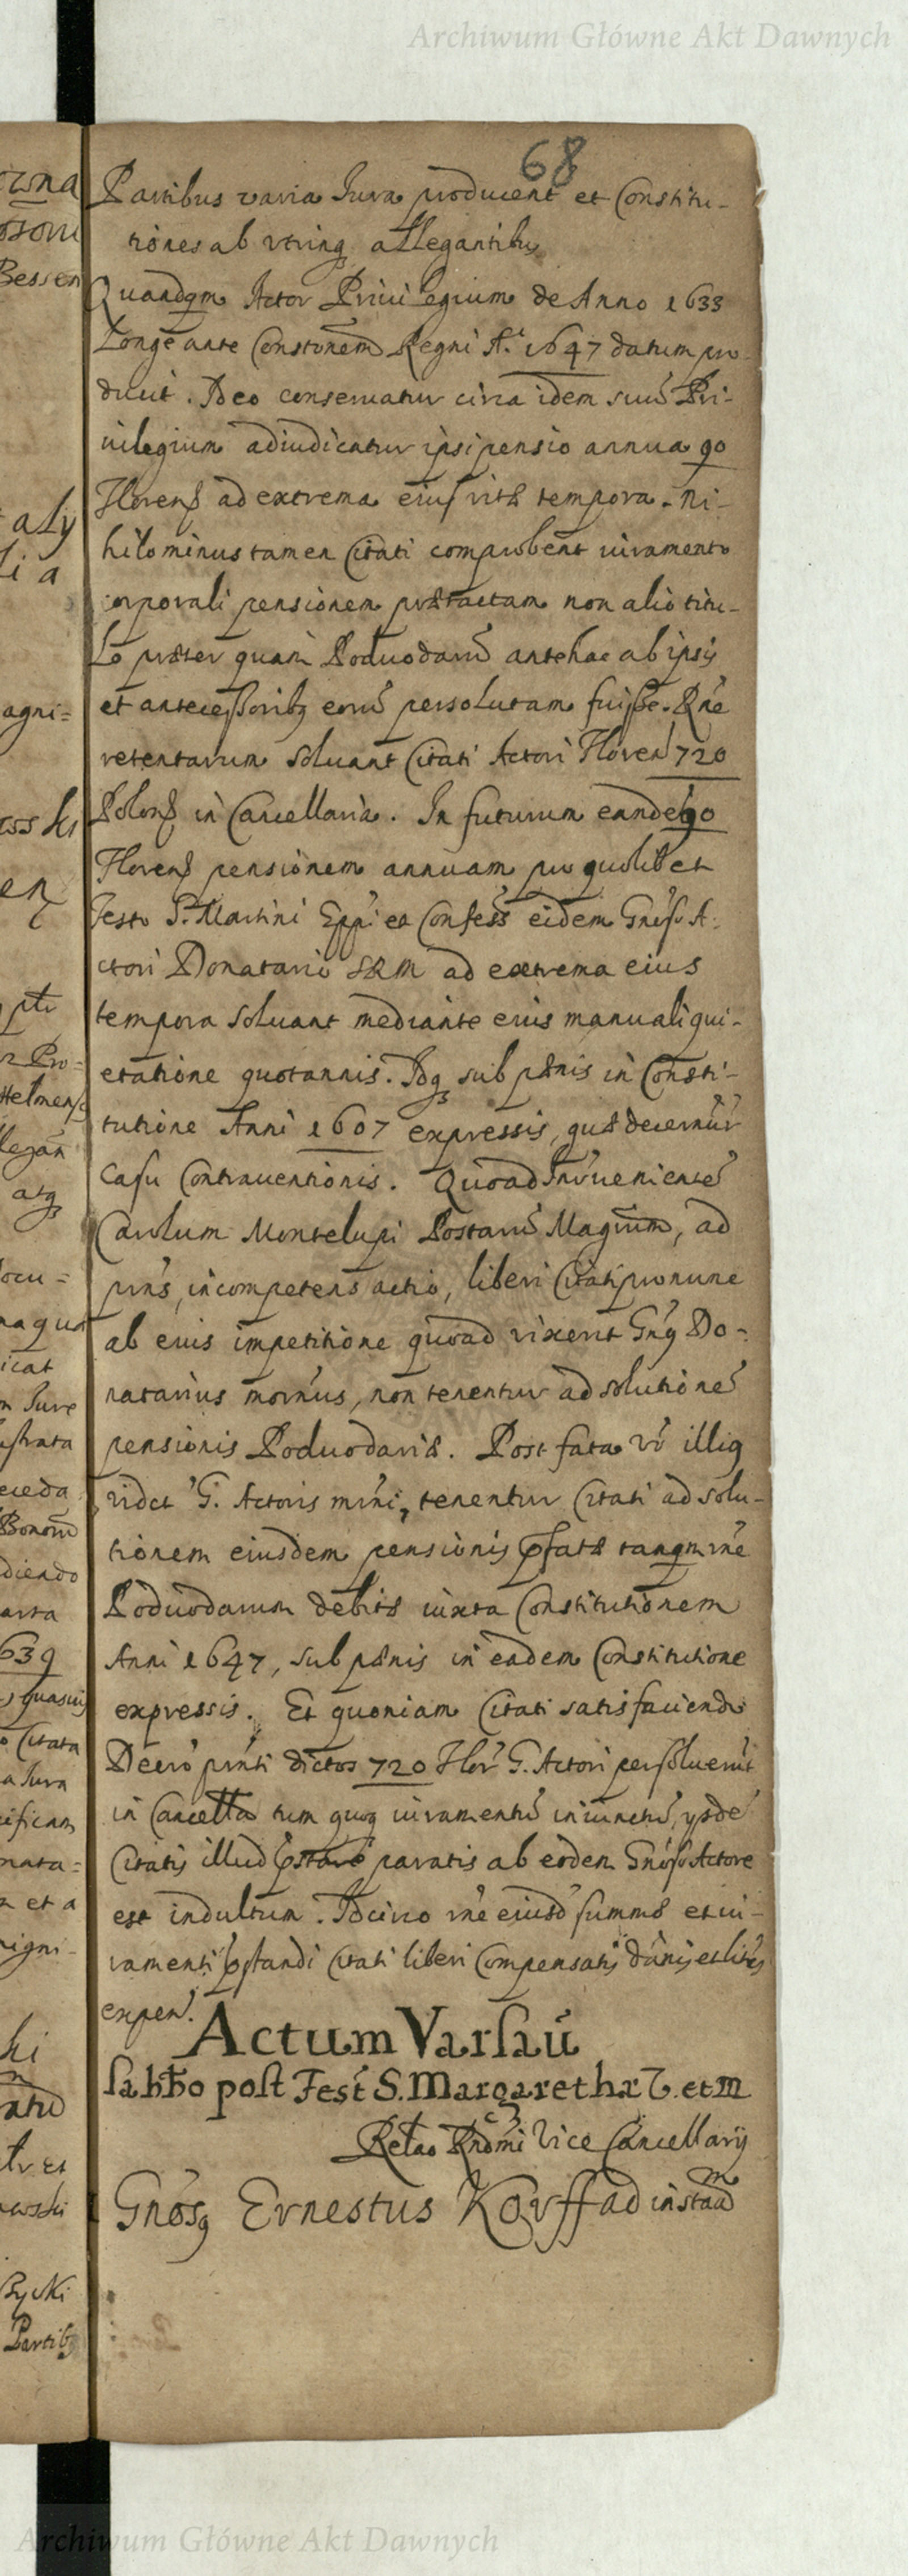 Archiwum Główne Akt Dawnych
68
Partibus varia Jura producent et Constitu-
tiones ab utrinq allegantibus
Quandoqm Actor Privilegium de Anno 1633
Longe ante Constonem Regni Ai 1647 datum pro-
ducit. Ideo conservatur circa idem suū Pri-
vilegium adiudicatur ipsi pensio annua 90
Floren ad extrema eius vitæ tempora. Ni-
hilominus tamen Citati comprobent iuramento
corporali pensionem prætactam non alio titu-
Lo præter quam Poduodarū antehac ab ipsis
et antecessoribq eorū persolutam fuisse. Rne
retentarum solvant Citati Actori Floren 720
Polon in Cancellaria. In futurum eande 90
Floren pensionem annuam pro quolibet
Festo S. Martini Eppi et Confess eidem Gnoso A-
ctori Donatario SRM ad extrema eius
tempora solvant mediante eius manuali qui-
etatione quotannis. Idq sub pænis in Consti-
tutione Anni 1607 expressis, quæ decernūr
Casu Contraventionis. Quoad Invenientē
Carolum Montelupi Postarū Magrum, ad
prns, incompetens actio, liberi Citati pronunc
ab eius impetitione quoad vixerit Gnq Do-
natarius mornus, non tenentur ad solutionē
pensionis Poduodariæ. Post fata vō illiq
videt G. Actoris mrni, tenentur Citati ad solu-
tionem eiusdem pensionis pfatæ tanqm rne
Poduodarum debitæ iuxta Constitutionem
Anni 1647, sub pænis in eadem Constitutione
expressis. Et quoniam Citati satisfaciendo
Decro prnti dictos 720 Flor G. Actori persolverūt
in Cancella tum quoq iuramentū iniunctū, ysde
Citatis illud pstare paratis ab eodem Gnoso Actore
est indultum. Idcirco rne eiusd summæ et iu-
ramenti pstandi Citati liberi Compensatis dānis et litis
expen.
Actum Varsaū
Sabbo post Fest S. Margarethæ V. et M
Relao Rndmi Vice Cancellarij
Gnosq Ernestus Korff ad instaām
Archiwum Główne Akt Dawnych